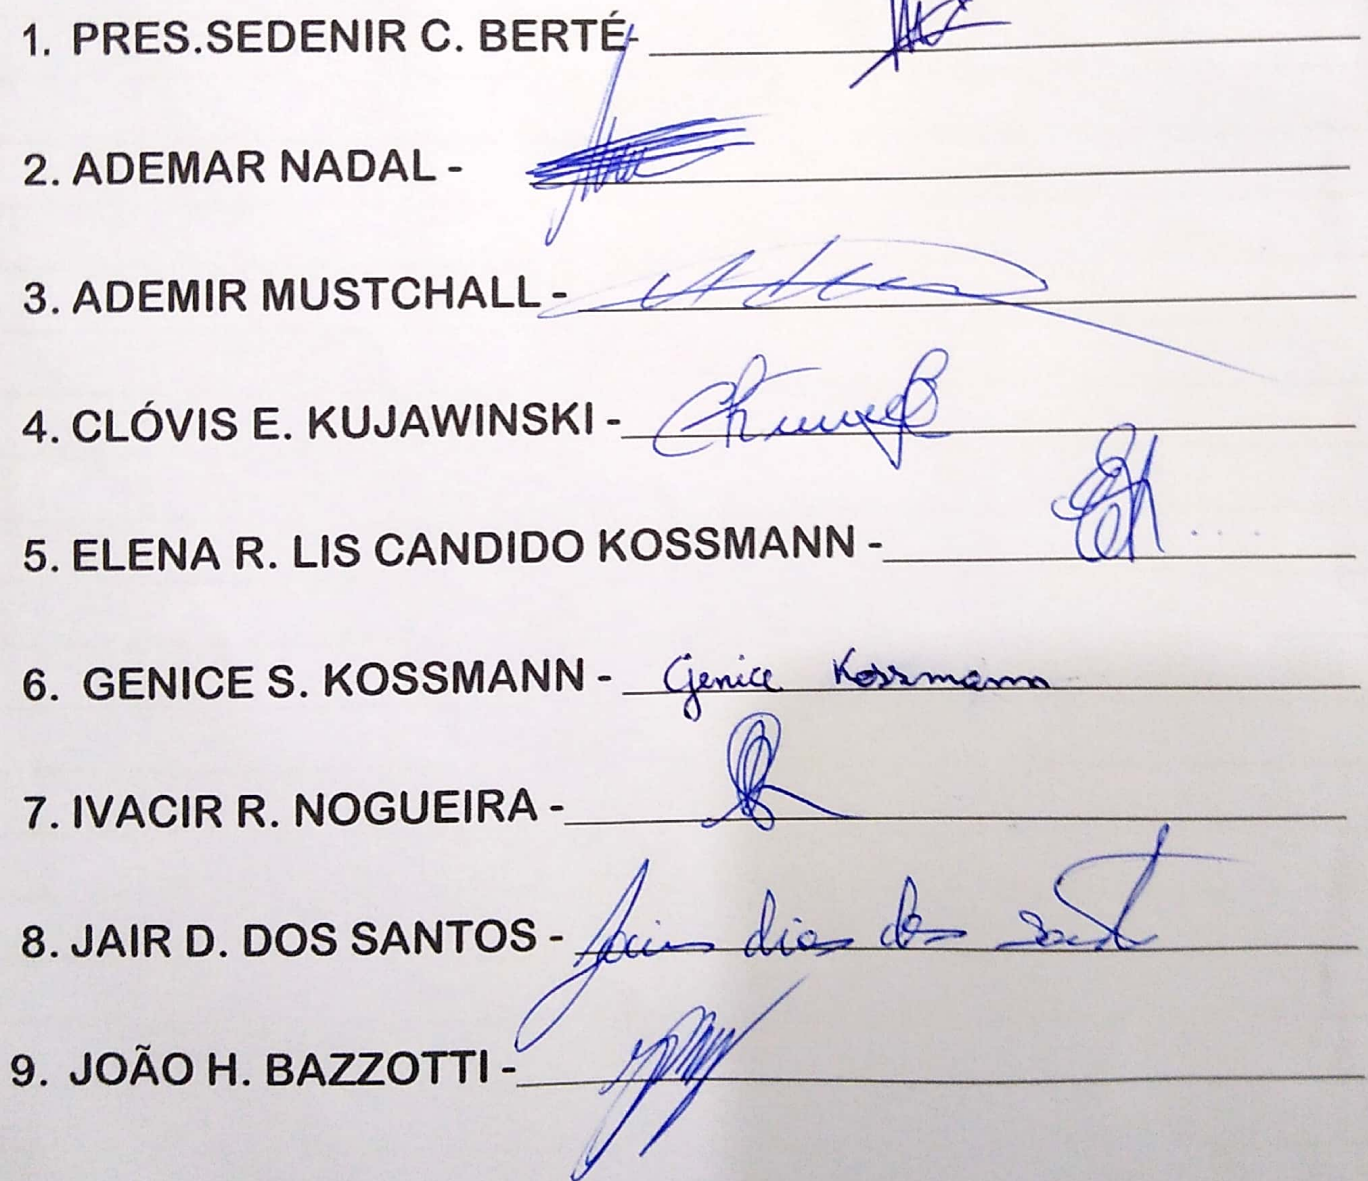 1. PRES.SEDENIR C. BERTÉ-
2. ADEMAR NADAL -
3. ADEMIR MUSTCHALL -
4. CLÓVIS E. KUJAWINSKI -
5. ELENA R. LIS CANDIDO KOSSMANN -
6. GENICE S. KOSSMANN - Genice Kossmann
7. IVACIR R. NOGUEIRA -
8. JAIR D. DOS SANTOS - Jair dias dos
9. JOÃO H. BAZZOTTI -